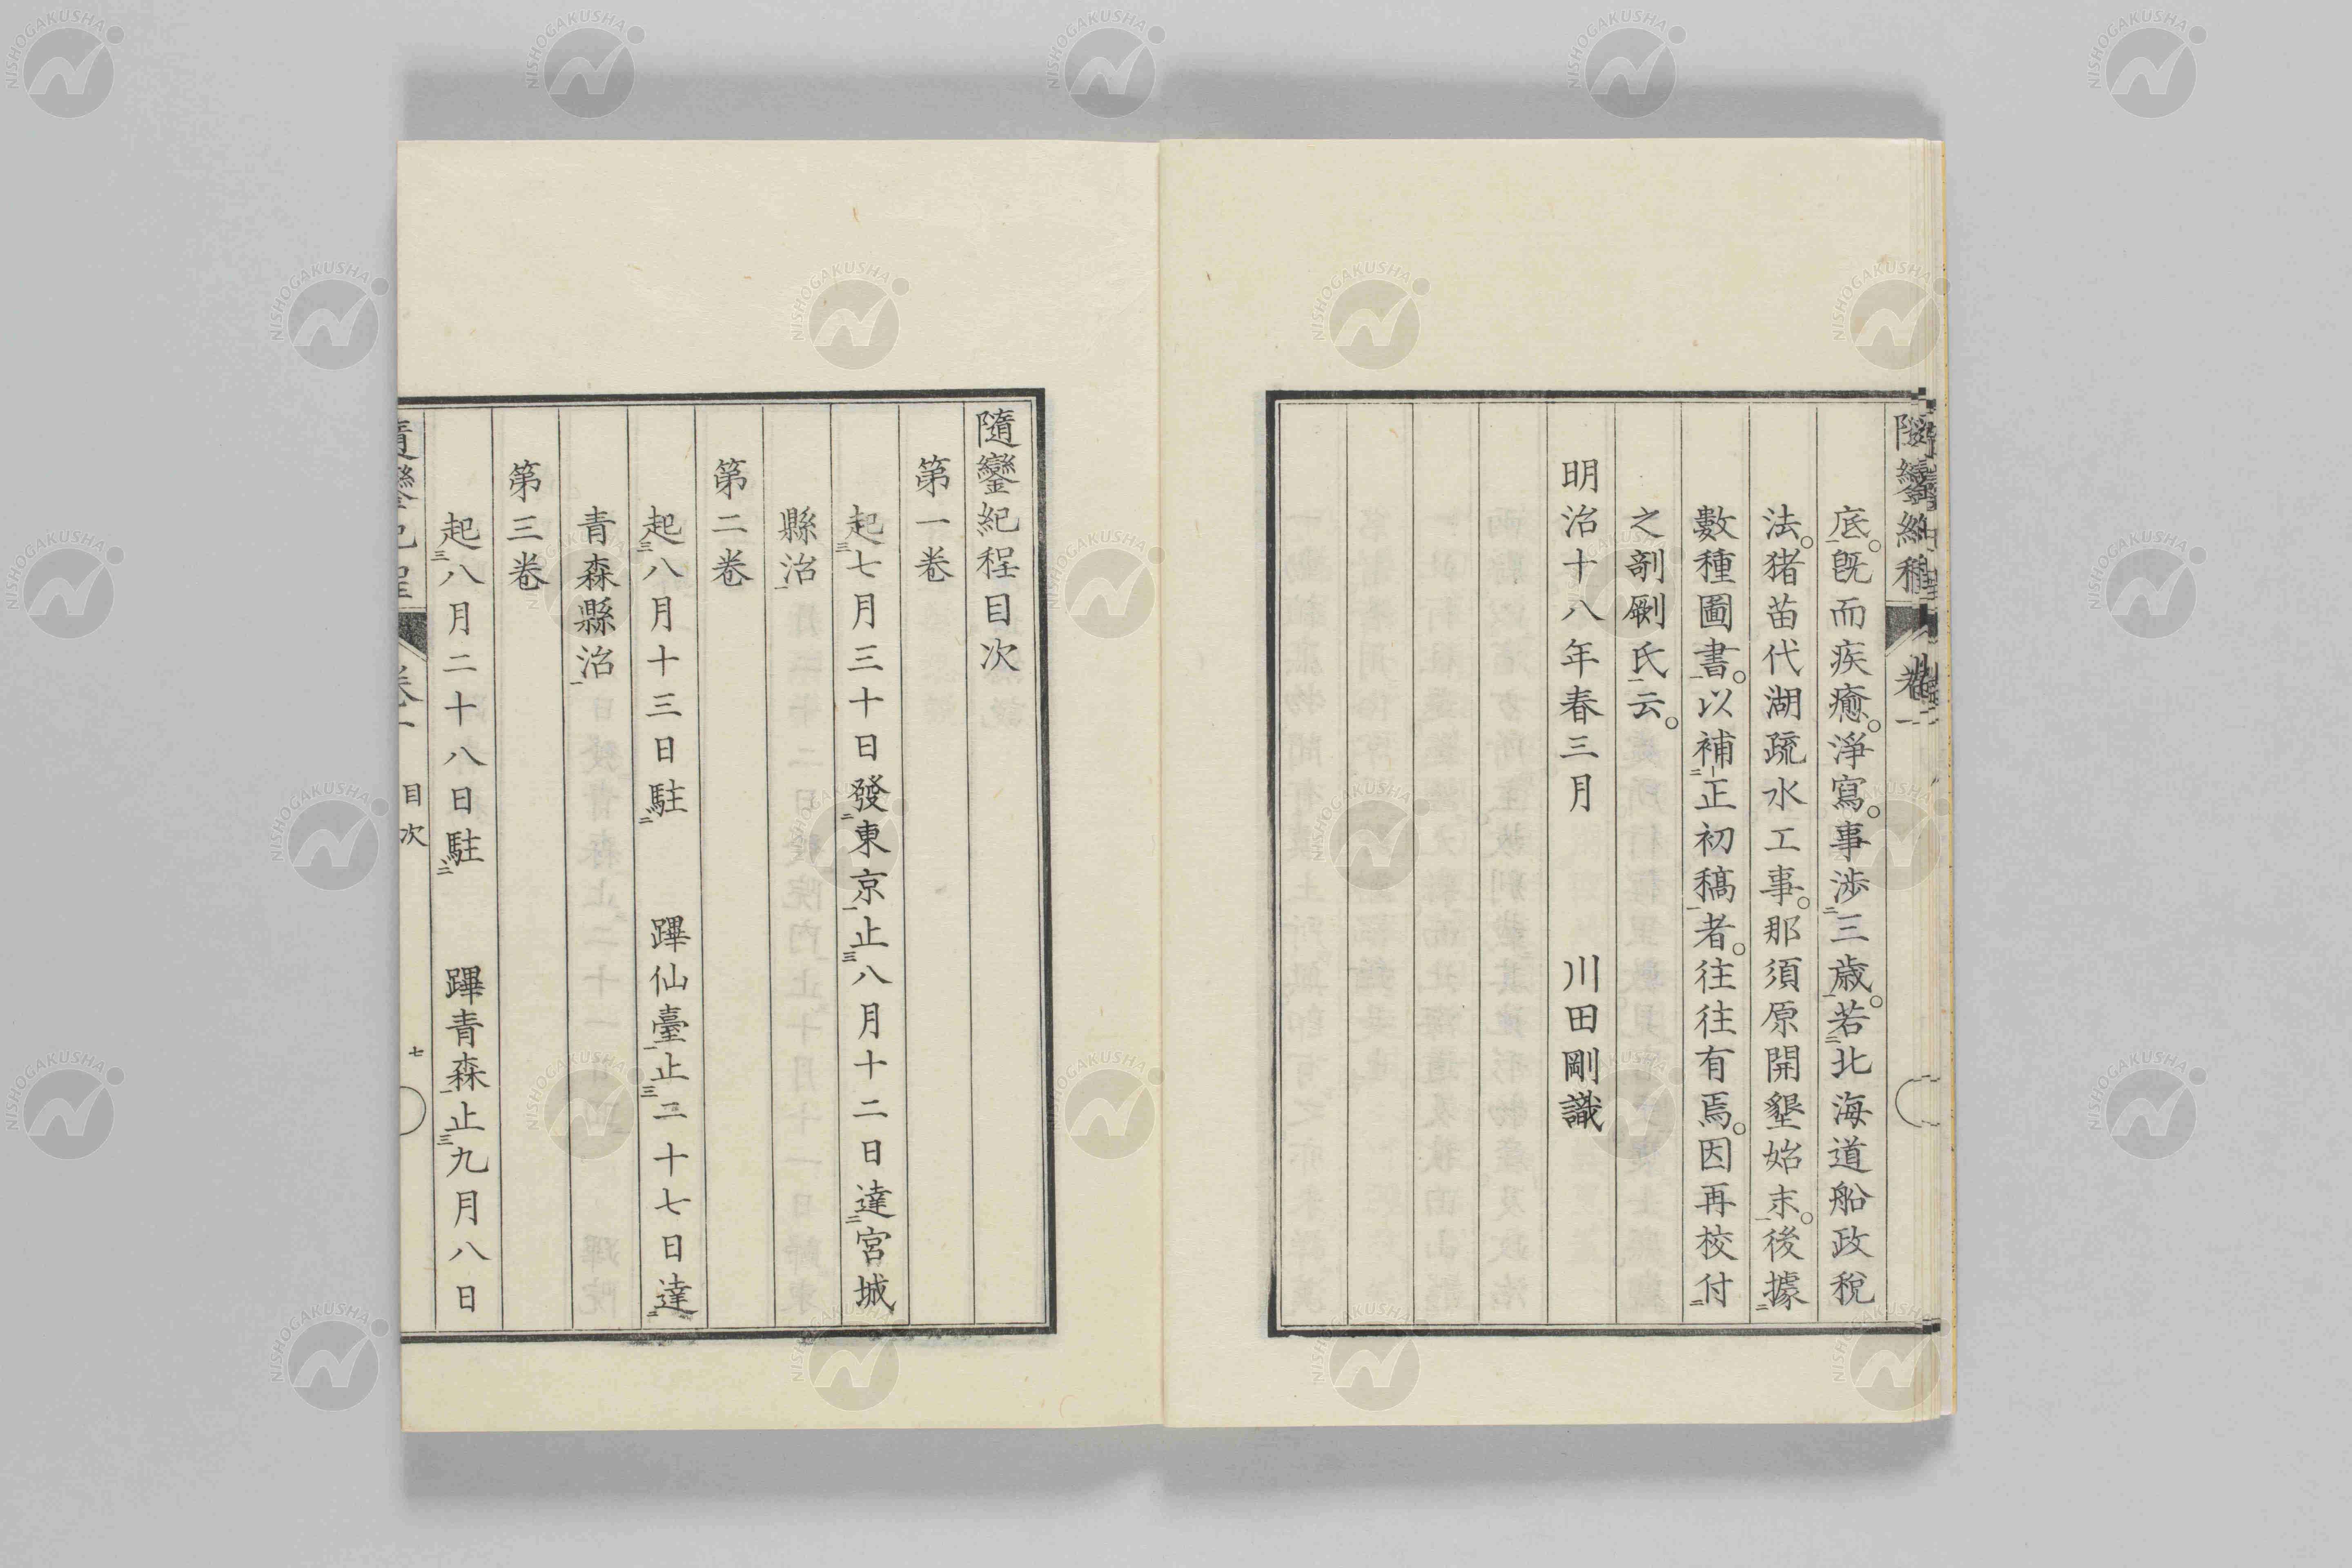 隨鑾紀程
卷一
底。既而疾癒。淨寫。事涉二三歳一。若二北海道船政税
法。猪苗代湖疏水工事。那須原開墾始末一。後據二
數種圖書一。以補二正初稿一者。往往有焉。因再校付二
之剞劂氏一云。
明治十八年春三月 川田剛識
隨鑾紀程目次
第一卷
起三七月三十日發二東京一止三八月十二日達二宮城
縣治一
第二卷
起三八月十三日駐二 蹕仙臺一止三二十七日達二
青森縣治一
第三卷
起三八月二十八日駐二 蹕青森一止三九月八日
隨鑾紀程
卷一 目次 七
NISHOGAKUSHA